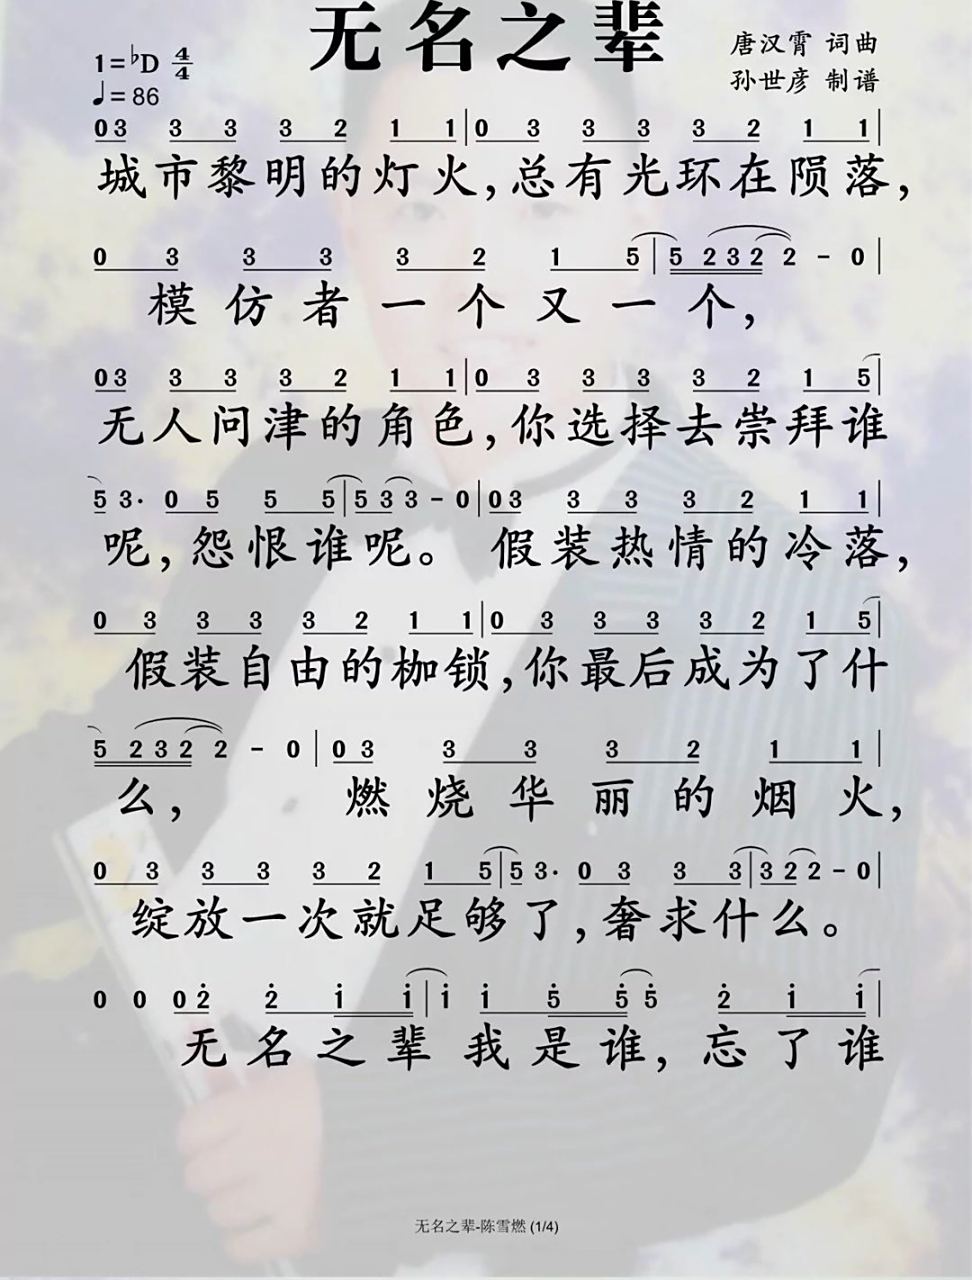 无名之辈
1=♭D 4/4
唐汉霄 词曲
♩= 86
孙世彦 制谱
0 3 3 3 3 2 1 1 | 0 3 3 3 3 2 1 1 |
城市黎明的灯火,总有光环在陨落,
0 3 3 3 3 2 1 5 | 5 2 3 2 2 – 0 |
模仿者一个又一个,
0 3 3 3 3 2 1 1 | 0 3 3 3 3 2 1 5 |
无人问津的角色,你选择去崇拜谁
5 3· 0 5 5 5 | 5 3 3 – 0 | 0 3 3 3 3 2 1 1 |
呢,怨恨谁呢。 假装热情的冷落,
0 3 3 3 3 2 1 1 | 0 3 3 3 3 2 1 5 |
假装自由的枷锁,你最后成为了什
5 2 3 2 2 – 0 | 0 3 3 3 3 2 1 1 |
么, 燃烧华丽的烟火,
0 3 3 3 3 2 1 5 | 5 3· 0 3 3 3 | 3 2 2 – 0 |
绽放一次就足够了,奢求什么。
0 0 0 2̇ 2̇ 1̇ 1̇ | 1̇ 1̇ 5̇ 5̇ 5̇ 2̇ 1̇ 1̇ |
无名之辈 我是谁,忘了谁
无名之辈-陈雪燃 (1/4)